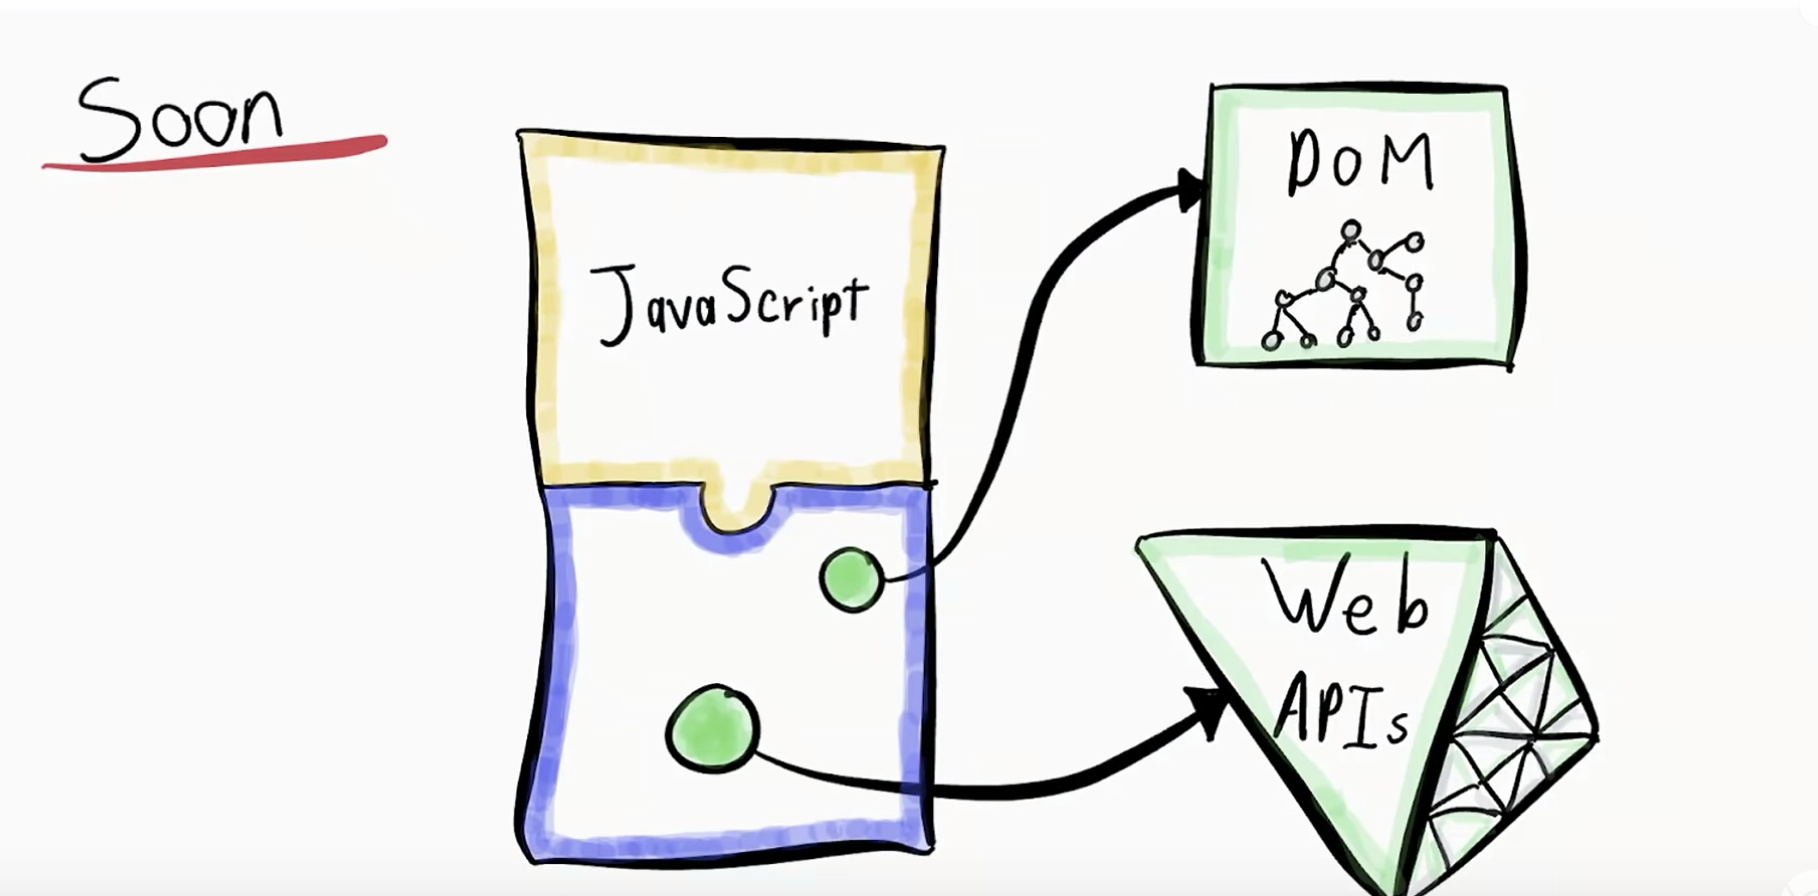 Soon
JavaScript
DoM
Web
APIs